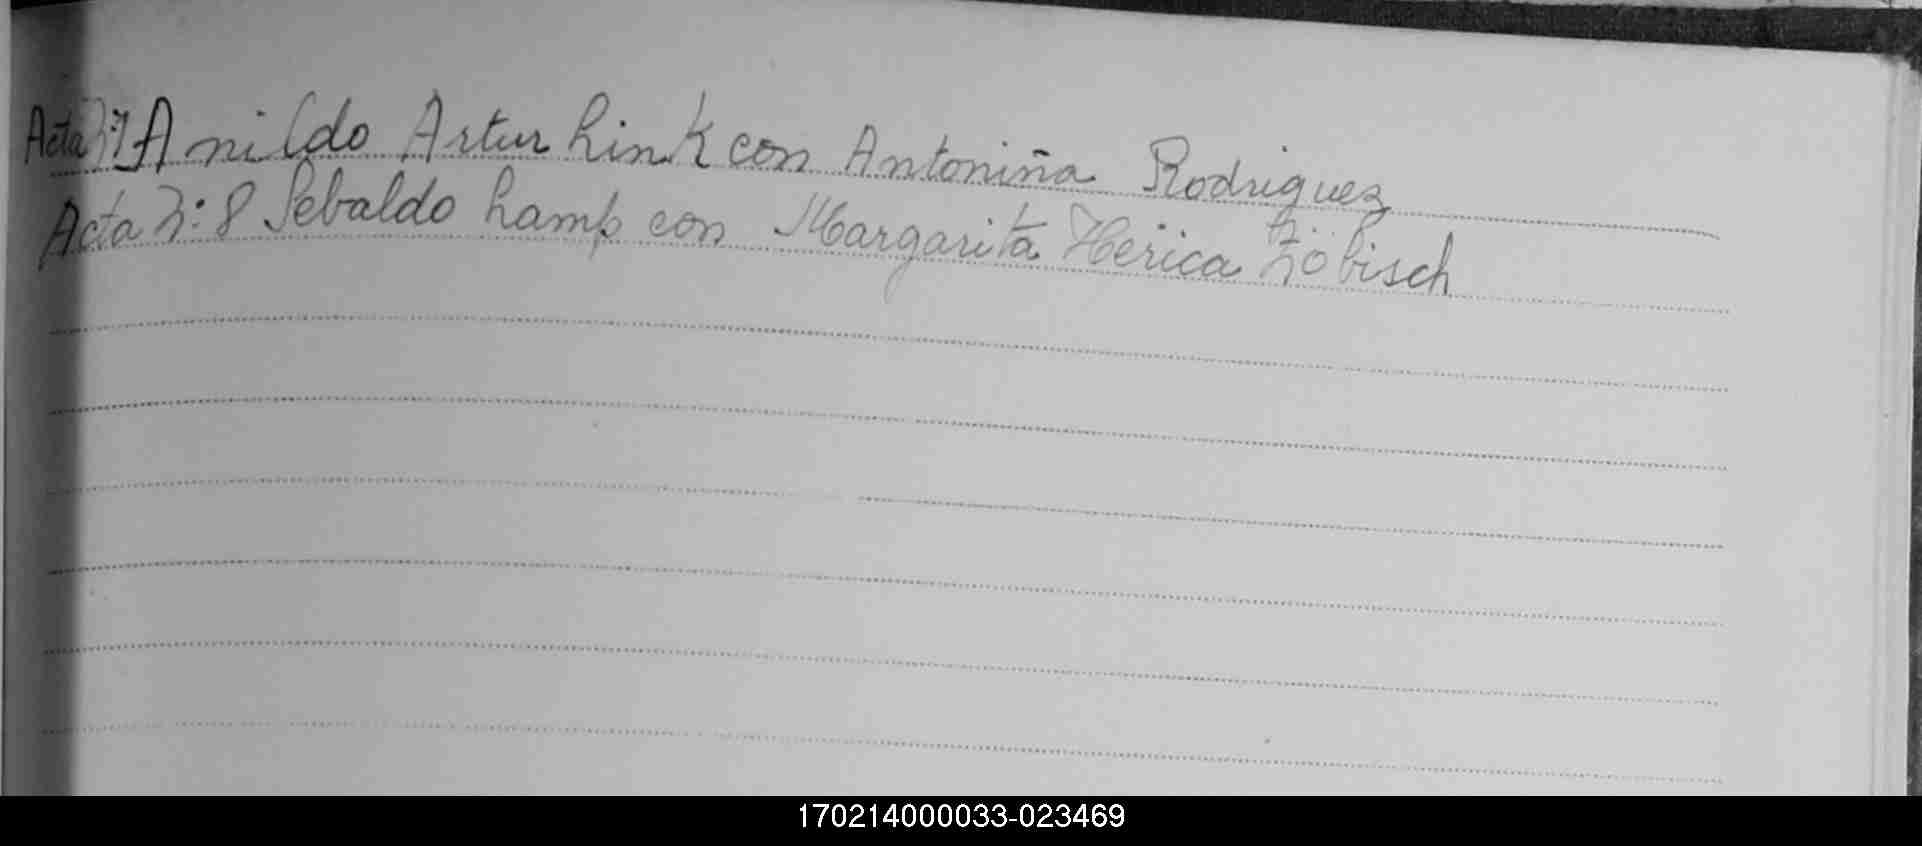 Acta N:7 Anildo Artur Link con Antoniña Rodriguez
Acta N:8 Sebaldo Lamp con Margarita Herica Zöbisch
170214000033-023469